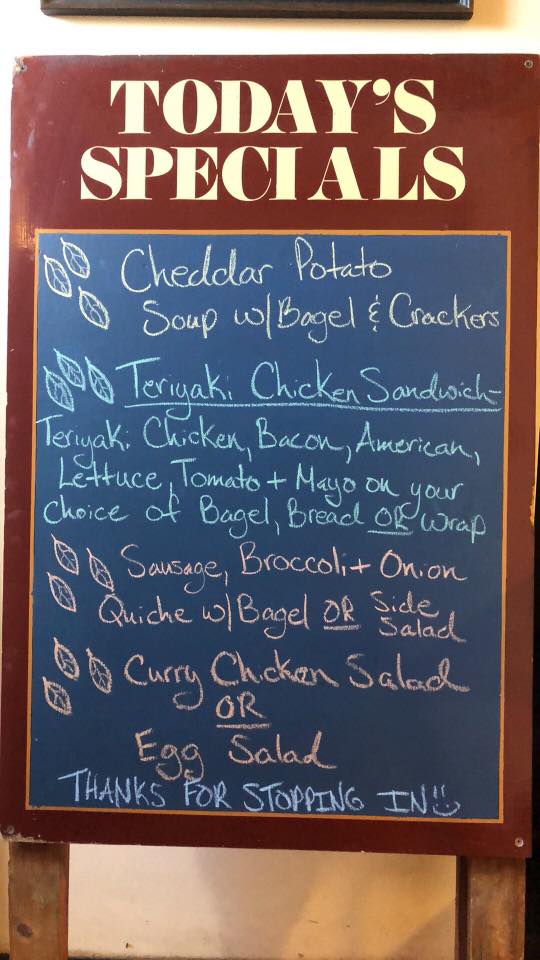 TODAY'S
SPECIALS
Cheddar Potato
Soup w/Bagel & Crackers
Teriyaki Chicken Sandwich-
Teriyaki Chicken, Bacon, American,
Lettuce, Tomato + Mayo on your
choice of Bagel, Bread OR Wrap
Sausage, Broccoli + Onion
Quiche w/Bagel OR Side
Salad
Curry Chicken Salad
OR
Egg Salad
THANKS FOR STOPPING IN